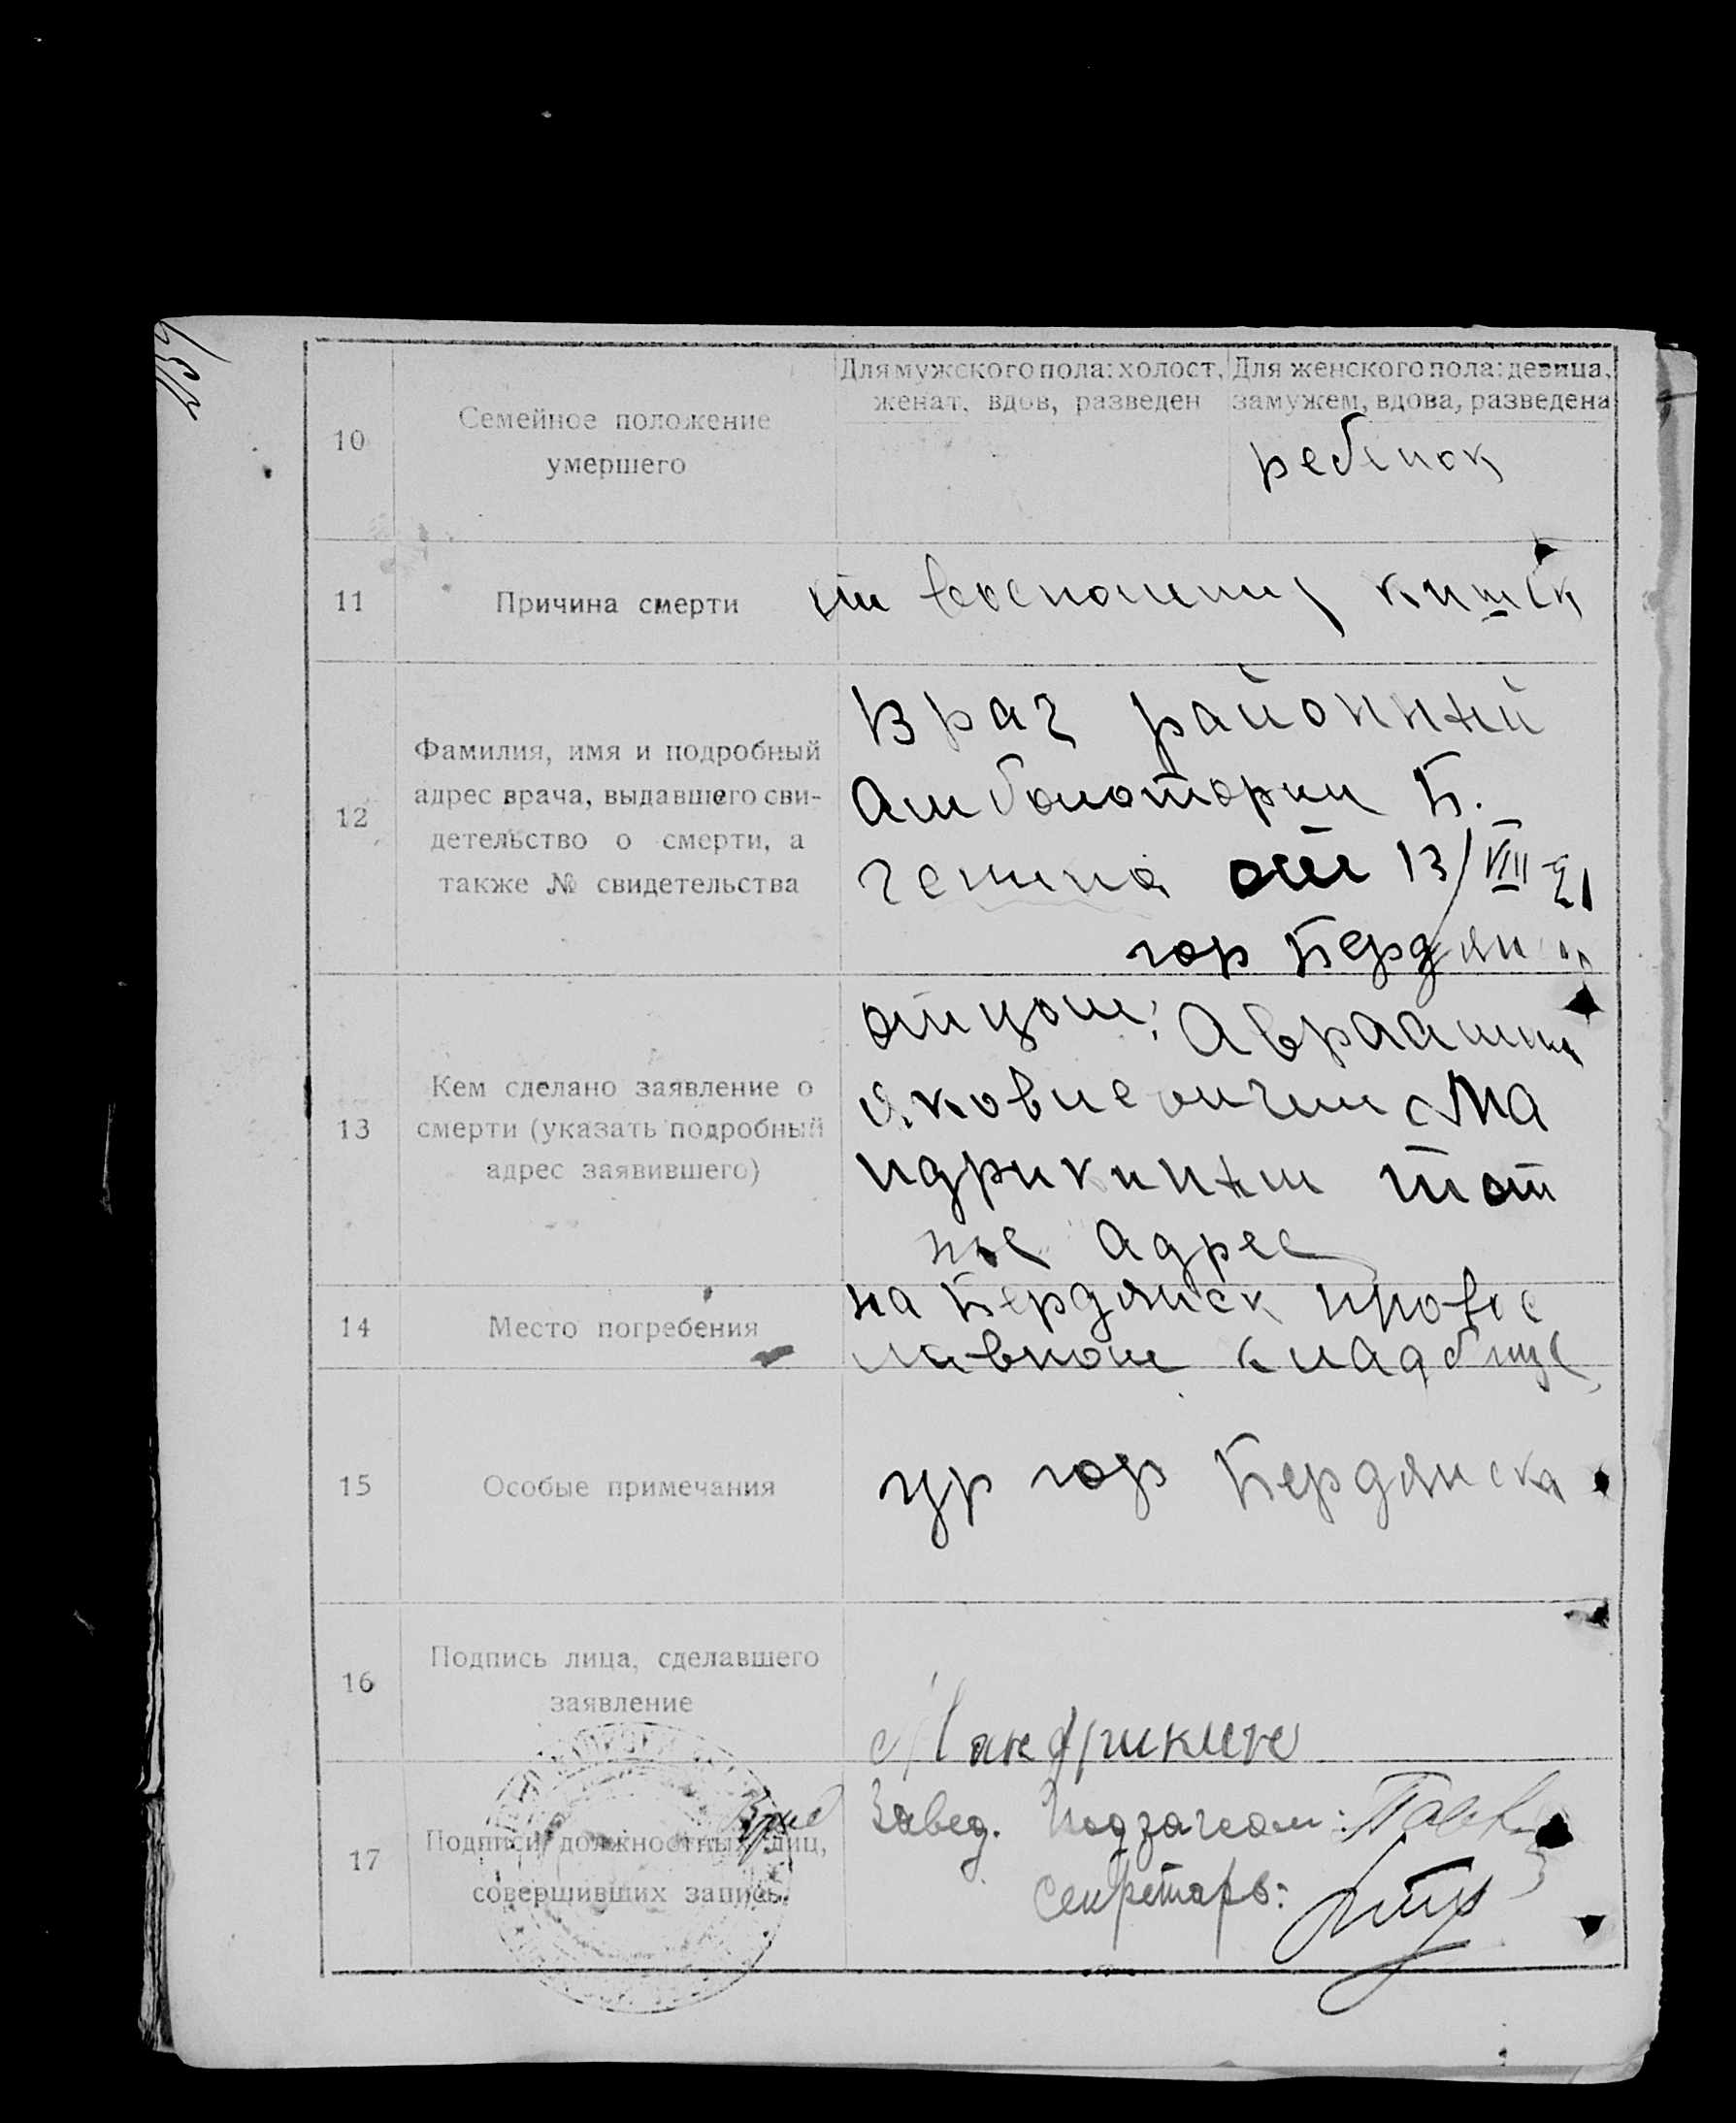 Для мужского пола: холост, женат, вдов, разведен
Для женского пола: девица, замужем, вдова, разведена
10
Семейное положение
умершего
ребенок
11
Причина смерти
от воспаления кишек
12
Фамилия, имя и подробный
адрес врача, выдавшего сви-
детельство о смерти, а
также № свидетельства
Врач районный
Амболотории Б.
от 13/VIII-21
гор Бердянск
13
Кем сделано заявление о
смерти (указать подробный
адрес заявившего)
отцом: Авраамом
Яковлевичем Ма
ндрикиным тот
же адрес
14
Место погребения
на Бердянск правос
лавном кладбище
15
Особые примечания
гр гор Бердянска
16
Подпись лица, сделавшего
заявление
Мандрикин
17
Подписи должностных лиц,
совершивших запись.
Врид
Завед. Подзагсом:
Секретарь: